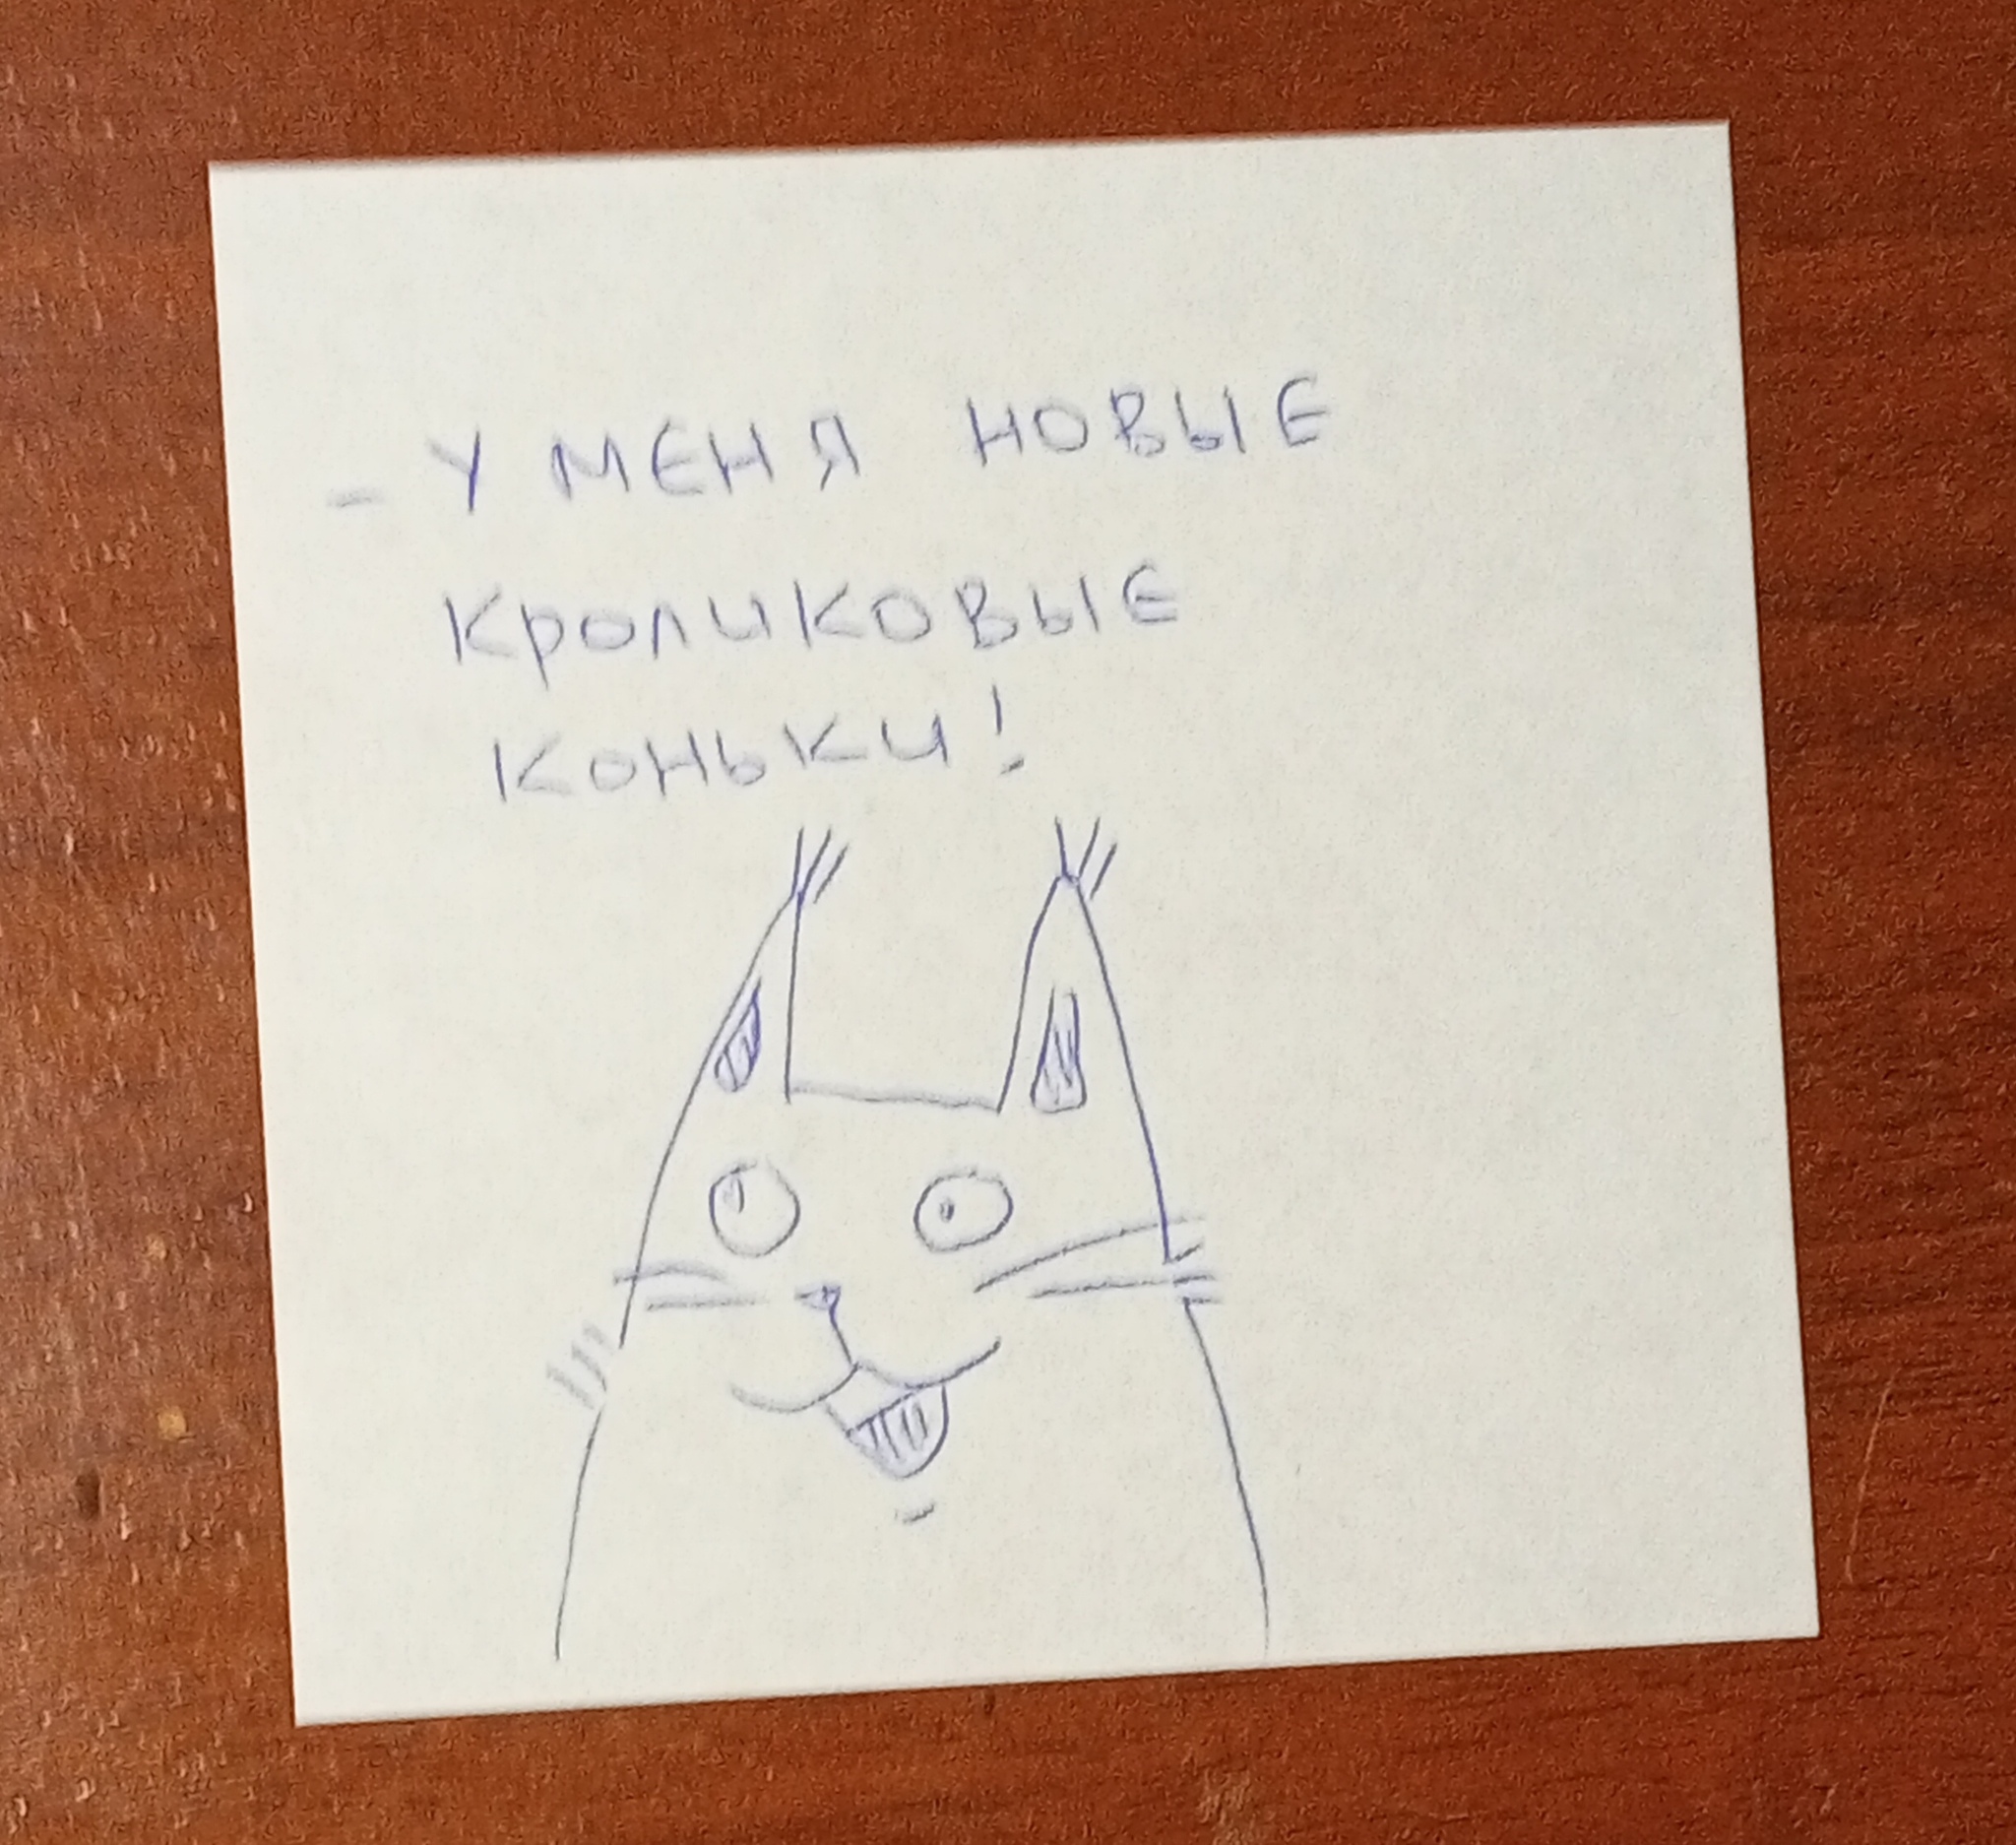 - У МЕНЯ НОВЫЕ
КРОЛИКОВЫЕ
КОНЬКИ!